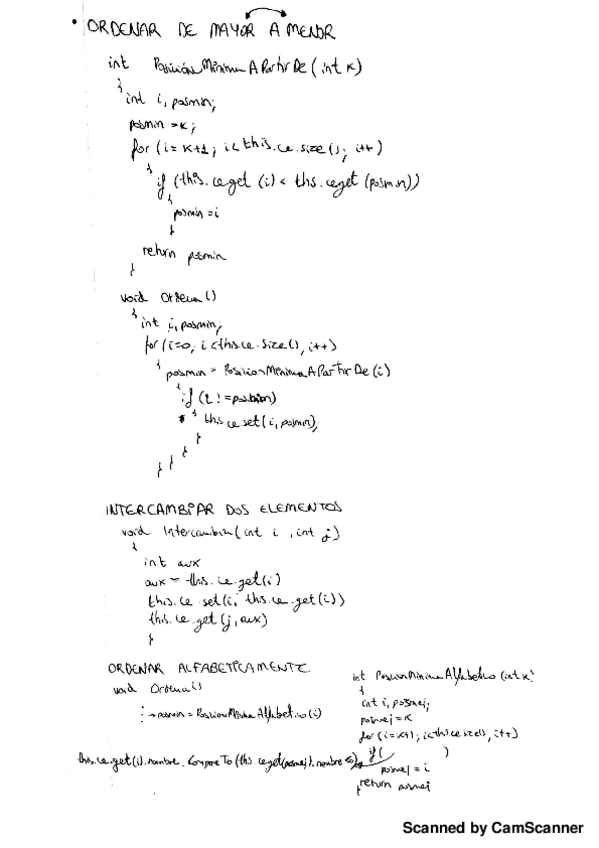 • ORDENAR DE MAYOR A MENOR
int PosiciónMínimaAPartirDe (int k)
{
int i, posmin;
posmin = k;
for (i = k+1; i < this.ce.size(); i++)
{
if (this.ce.get (i) < this.ce.get (posmin))
{
posmin = i
}
return posmin
}
void Ordena()
{
int i, posmin;
for (i=0, i < this.ce.size(), i++)
{ posmin = PosicionMínimaAPartirDe (i)
{
if (i != posmin)
{ this.ce.set (i, posmin);
}
}
} }
INTERCAMBIAR DOS ELEMENTOS
void Intercambia (int i, int j)
{
int aux
aux = this.ce.get(i)
this.ce.set(i, this.ce.get(i))
this.ce.get (j, aux)
}
ORDENAR ALFABETICAMENTE
void Ordena()
posmin = PosicionMínimaAlfabetico (i)
int PosicionMinimaAlfabetico (int k)
{
int i, posmej;
posmej = k
for (i = k+1; i < this.ce.size(), i++)
if (          )
this.ce.get(i).nombre.compareTo (this.ce.get(posmej).nombre
posmej = i
return posmej
Scanned by CamScanner